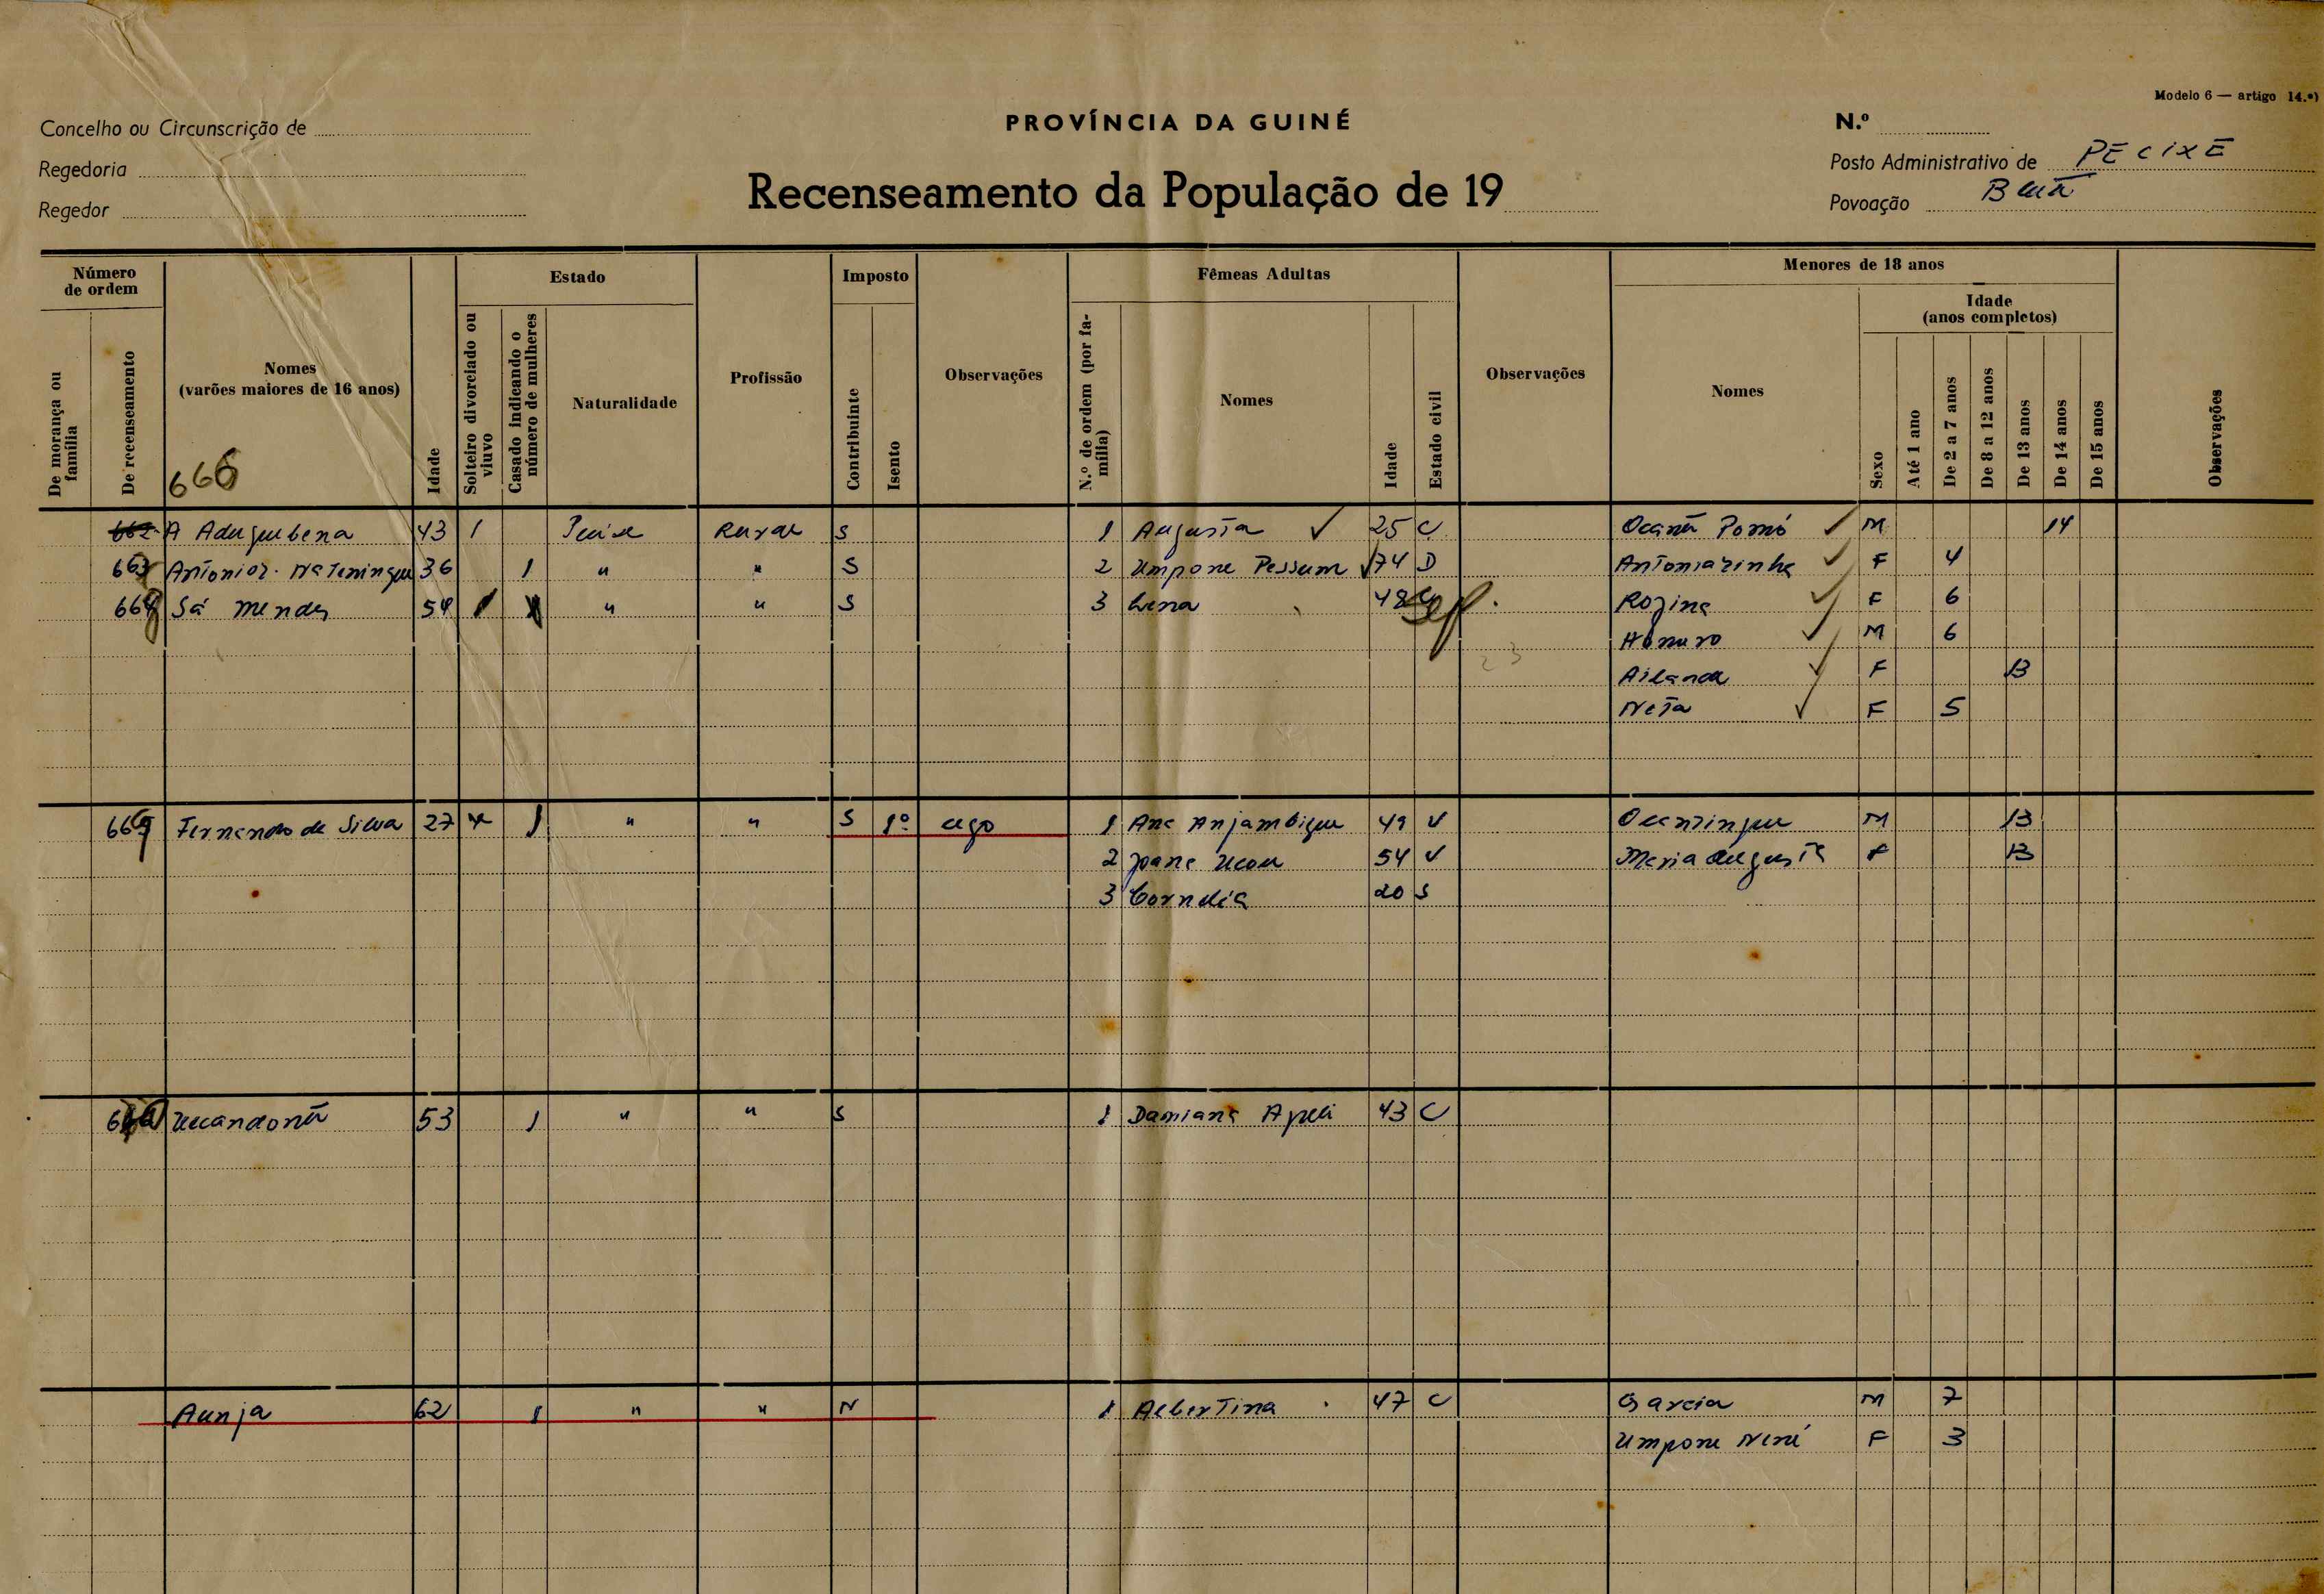 Modelo 6 — artigo 14.º)
Concelho ou Circunscrição de
PROVÍNCIA DA GUINÉ
N.º
Regedoria
Posto Administrativo de PECIXE
Regedor
Recenseamento da População de 19
Povoação
Número de ordem
Estado
Imposto
Fêmeas Adultas
Menores de 18 anos
Idade (anos completos)
De morança ou família
De recenseamento
Nomes (varões maiores de 16 anos)
Idade
Solteiro divorciado ou viuvo
Casado indicando o número de mulheres
Naturalidade
Profissão
Contribuinte
Isento
Observações
N.º de ordem (por família)
Nomes
Idade
Estado civil
Observações
Nomes
Sexo
Até 1 ano
De 2 a 7 anos
De 8 a 12 anos
De 13 anos
De 14 anos
De 15 anos
Observações
666
662 43 1 Rural S 1 Augusta ✓ 25 C ✓ M 14
663 36 1 " " S 2 Umpone Pessum ✓ 74 D Antoniazinha ✓ F 4
Sá Mendes 54 " " S 3 48 Rozina ✓ F 6
M 6
23
✓ F 13
Neta ✓ F 5
Fernando da Silva 27 1 " " S 1º cego 1 Ana Anjambique 49 V M 13
2 Joana 54 V Maria Augusta F 13
3 Cornelia 20 S
53 1 " " S 1 Damiana 43 C
Aunja 62 1 " " N 1 Albertina 47 C Garcia M 7
Umpone Nené F 3